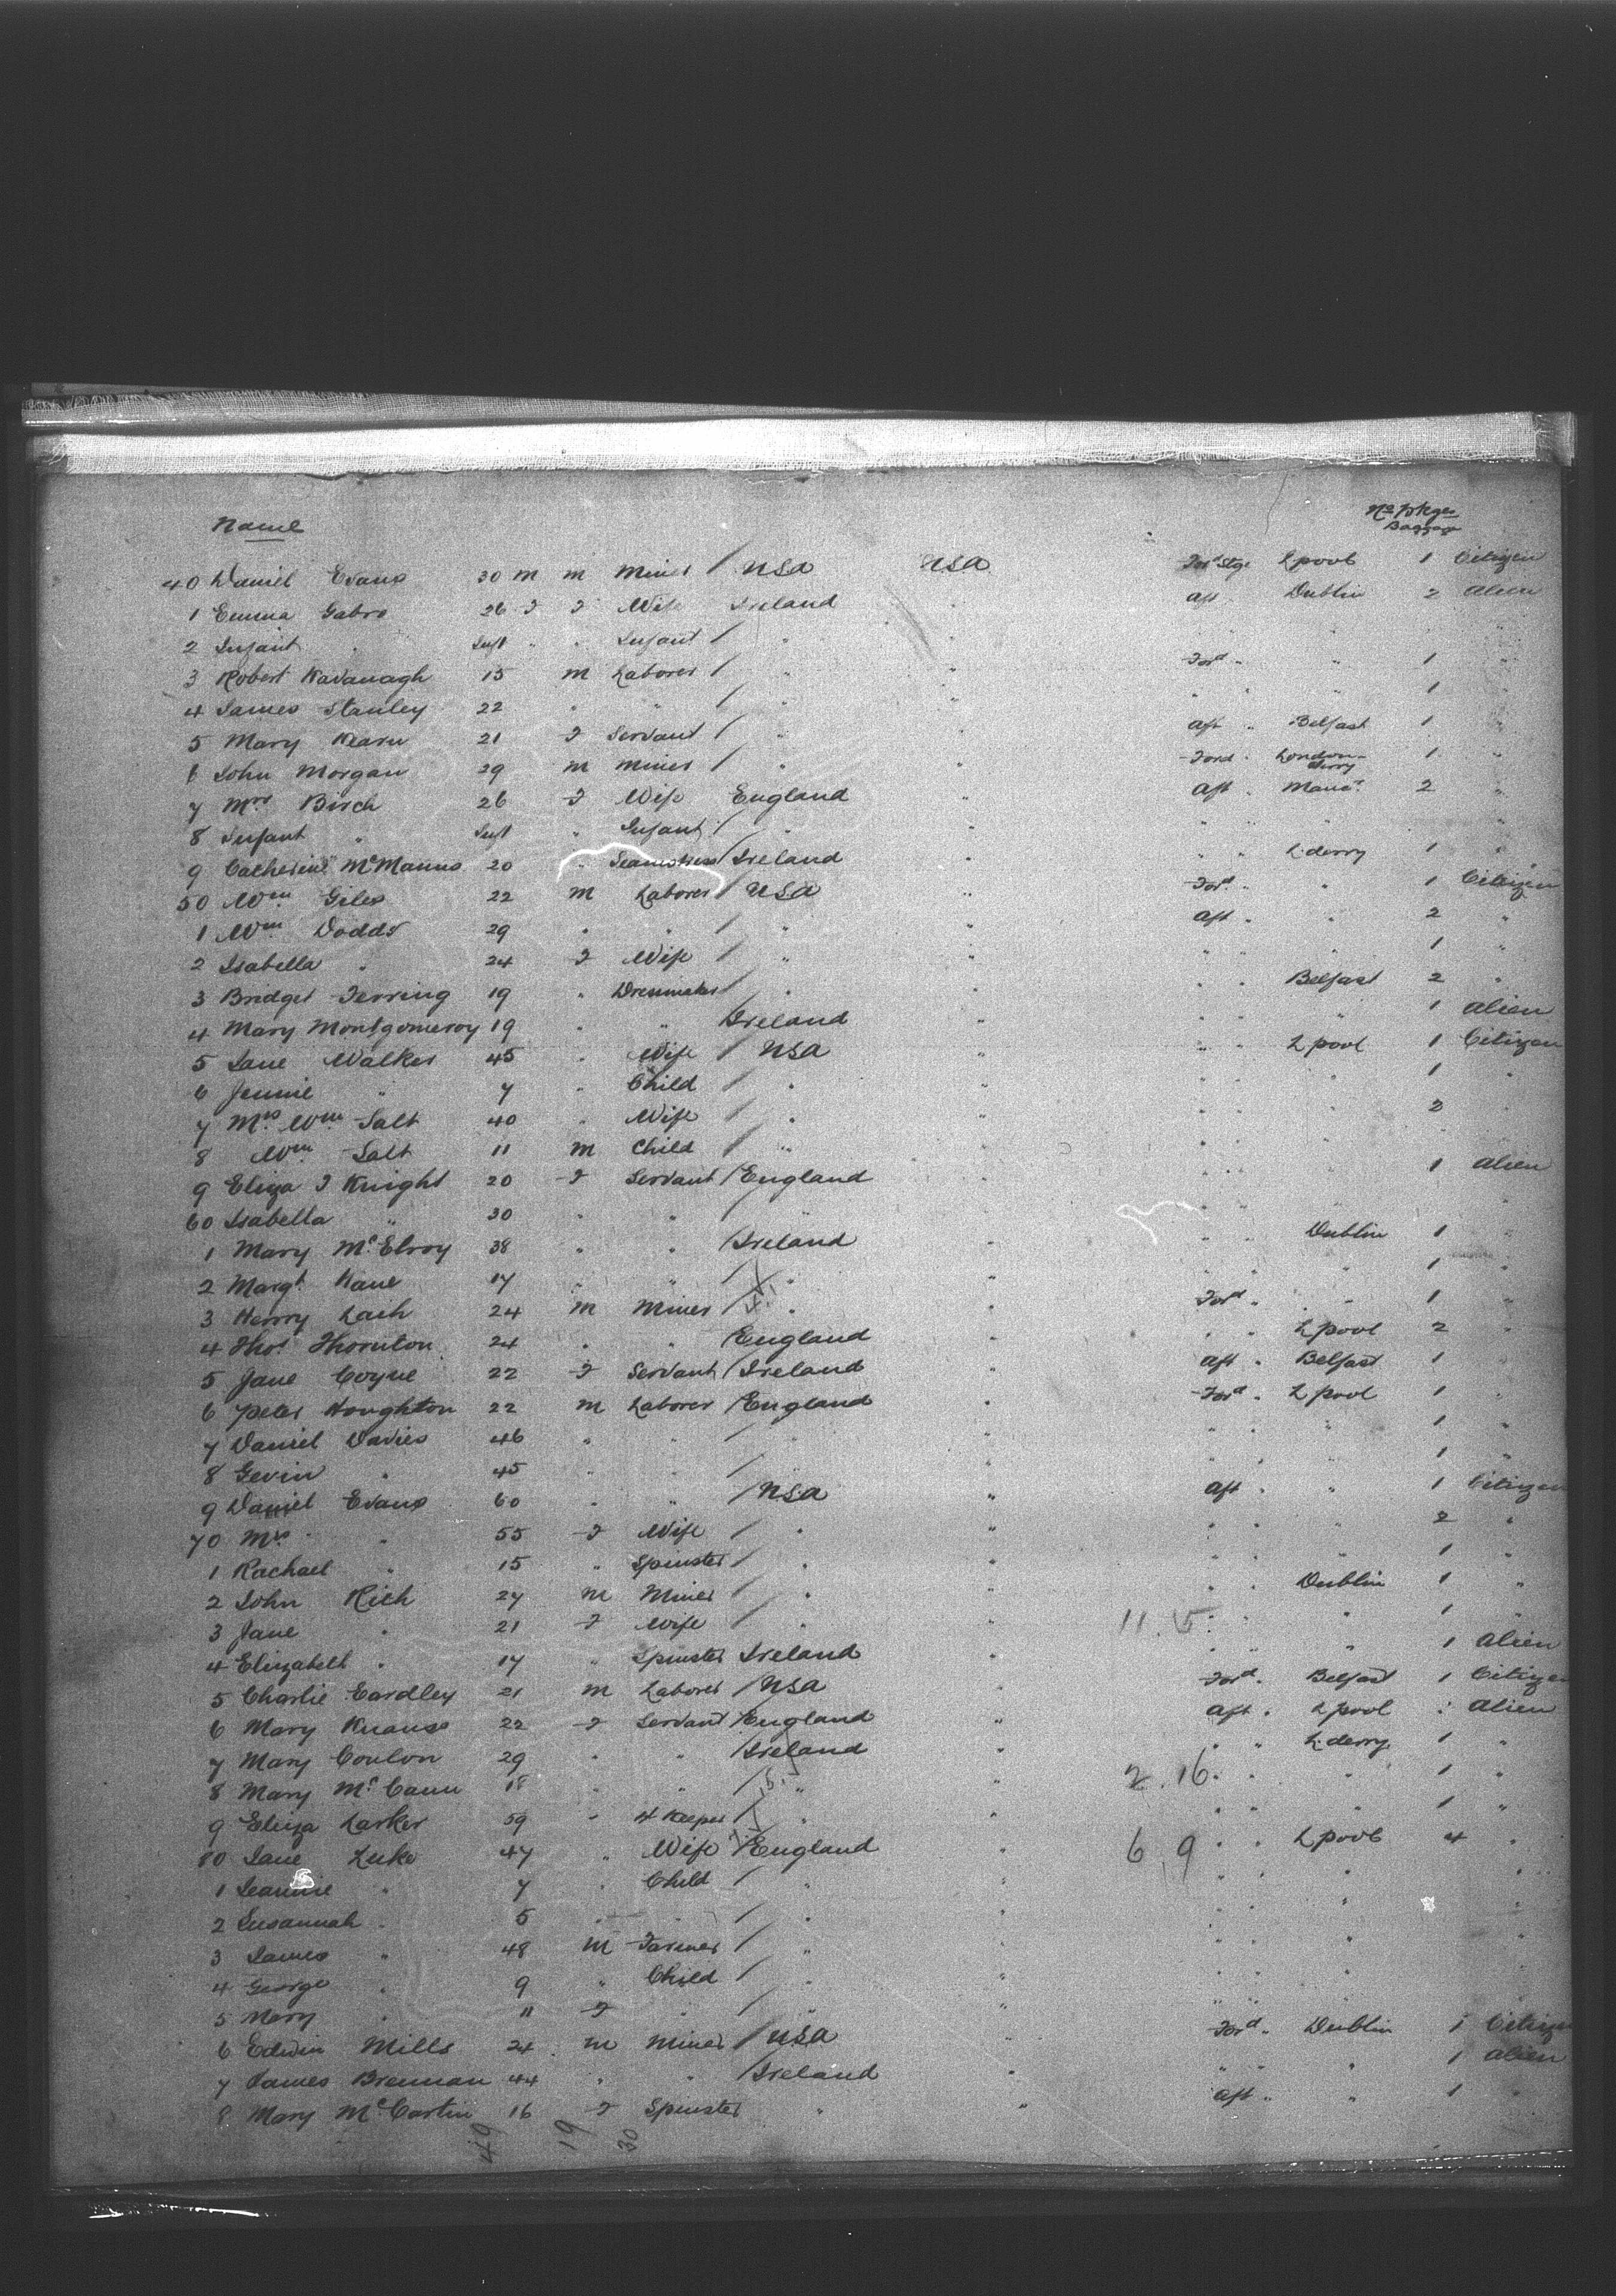 Name No Pkges Baggage
40 Daniel Evans 30 m m Miner / USA USA For'd Stge L'pool 1 Citizen
1 Emma Gabro 26 F F Wife Ireland " Aft " Dublin 2 Alien
2 Infant " Inft " " Infant / " " "
3 Robert Kavanagh 15 m Laborer / " " For'd " " 1 "
4 James Stanley 22 " " / " " " " 1 "
5 Mary Kearn 21 F Servant / " " Aft " Belfast 1 "
6 John Morgan 29 m Miner / " " Ford " London-derry 1 "
7 Mrs Birch 26 F Wife England " Aft " Manc'r 2 "
8 Infant " Inft " Infant / " " " " "
9 Catherine McManus 20 " Seamstress / Ireland " " " L'derry 1 "
50 Wm Giles 22 m Laborer / USA " For'd " " 1 Citizen
1 Wm Dodds 29 " " / " " Aft " " 2 "
2 Isabella " 24 F Wife / " " " " " 1 "
3 Bridget Ferring 19 " Dressmaker / " " " " Belfast 2 "
4 Mary Montgomeroy 19 " " Ireland " " " " 1 Alien
5 Jane Walker 45 " Wife / USA " " " L'pool 1 Citizen
6 Jennie " 7 " Child / " " " " " 1 "
7 Mrs Wm Salt 40 " Wife / " " " " " 2 "
8 Wm Salt 11 m Child / " " " " "
9 Eliza F Knight 20 F Servant / England " " " " 1 Alien
60 Isabella " 30 " " / " " " "
1 Mary McElroy 38 " " / Ireland " " " Dublin 1 "
2 Margt Kane 17 " " / " " " " " 1 "
3 Henry Lash 24 m Miner / " " For'd " " 1 "
4 Thos Thornton 24 " " England " " " L'pool 2 "
5 Jane Coyne 22 F Servant / Ireland " Aft " Belfast 1 "
6 Peter Houghton 22 m Laborer / England " For'd " L'pool 1 "
7 Daniel Davies 46 " " / " " " " " 1 "
8 Gevin " 45 " " / " " " " " 1 "
9 Daniel Evans 60 " " / USA " Aft " " 1 Citizen
70 Mrs " 55 F Wife / " " " " " 2 "
1 Rachael " 15 " Spinster / " " " " " 1 "
2 John Rich 27 m Miner / " " " " Dublin 1 "
3 Jane " 21 F Wife / " " 11.5 " " " 1 "
4 Elizabeth " 17 " Spinster Ireland " " " " 1 Alien
5 Charlie Eardley 21 m Laborer / USA " For'd " Belfast 1 Citizen
6 Mary Knauss 22 F Servant / England " Aft " L'pool : Alien
7 Mary Conlon 29 " " / Ireland " " " L'derry 1 "
8 Mary McCann 18 " " / " " 2.16 " " " 1 "
9 Eliza Larker 59 " H Keeper / " " " " " 1 "
80 Jane Luke 47 " Wife / England " 6.9 " " L'pool 4 "
1 Jeannie " 7 " Child / " " " " " "
2 Susannah " 5 " " / " " " " " "
3 James " 48 m Farmer / " " " " " "
4 George " 9 " Child / " " " " " "
5 Mary " 11 F " / " " " " "
6 Edwin Mills 24 m Miner / USA " For'd " Dublin 1 Citizen
7 James Brennan 44 " " / Ireland " " " " 1 Alien
8 Mary McCartin 16 F Spinster " " Aft " " 1 "
49 19 30